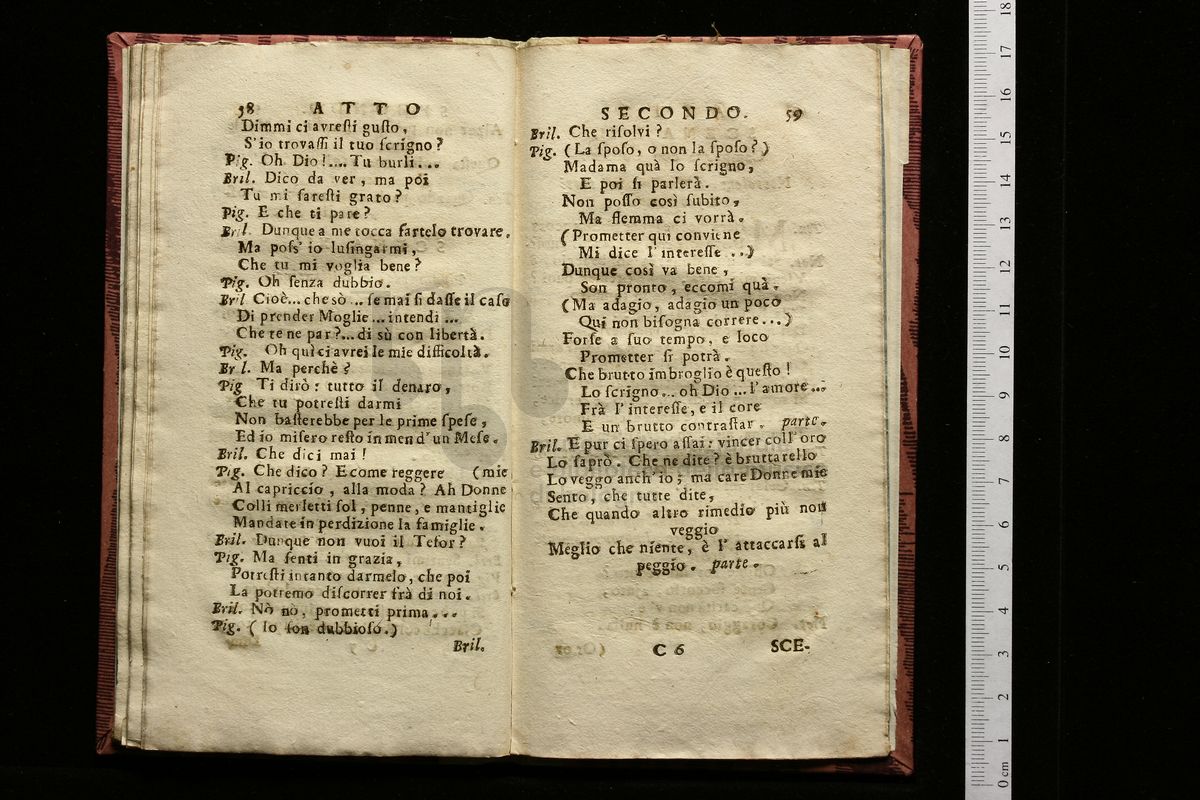 58 ATTO
Dimmi ci avreſti guſto,
S'io trovaſſi il tuo ſcrigno?
Pig. Oh Dio!....Tu burli...
Bril. Dico da ver, ma poi
Tu mi fareſti grato?
Pig. E che ti pare?
Bril. Dunque a me tocca fartelo trovare.
Ma poſs' io luſingarmi,
Che tu mi voglia bene?
Pig. Oh ſenza dubbio.
Bril Cioè... che sò ... ſe mai ſi daſſe il caſo
Di prender Moglie... intendi ...
Che te ne par?... di sù con libertà.
Pig. Oh quì ci avrei le mie difficoltà.
Br l. Ma perchè?
Pig Ti dirò: tutto il denaro,
Che tu potreſti darmi
Non baſterebbe per le prime ſpeſe,
Ed io miſero reſto in men d' un Meſe.
Bril. Che dici mai!
Pig. Che dico? E come reggere (mie
Al capriccio, alla moda? Ah Donne
Colli merletti ſol, penne, e mantiglie
Mandate in perdizione la famiglie.
Bril. Dunque non vuoi il Teſor?
Pig. Ma ſenti in grazia,
Potreſti intanto darmelo, che poi
La potremo diſcorrer frà di noi.
Bril. Nò no, prometti prima...
Pig. (Io ſon dubbioſo.)
Bril.
SECONDO. 59
Bril. Che riſolvi?
Pig. (La ſpoſo, o non la ſpoſo?)
Madama quà lo ſcrigno,
E poi ſi parlerà.
Non poſſo così ſubito,
Ma flemma ci vorrà.
(Prometter qui conviene
Mi dice l' intereſſe ...)
Dunque così va bene,
Son pronto, eccomi quà.
(Ma adagio, adagio un poco
Qui non biſogna correre...)
Forſe a ſuo tempo, e loco
Prometter ſi potrà.
Che brutto imbroglio è queſto!
Lo ſcrigno... oh Dio... l'amore...
Frà l' intereſſe, e il core
E un brutto contraſtar. parte.
Bril. E pur ci ſpero aſſai: vincer coll' oro
Lo ſaprò. Che ne dite? è bruttarello
Lo veggo anch' io; ma care Donne mie
Sento, che tutte dite,
Che quando altro rimedio più non
veggio
Meglio che niente, è l' attaccarſi al
peggio. parte.
C 6 SCE-